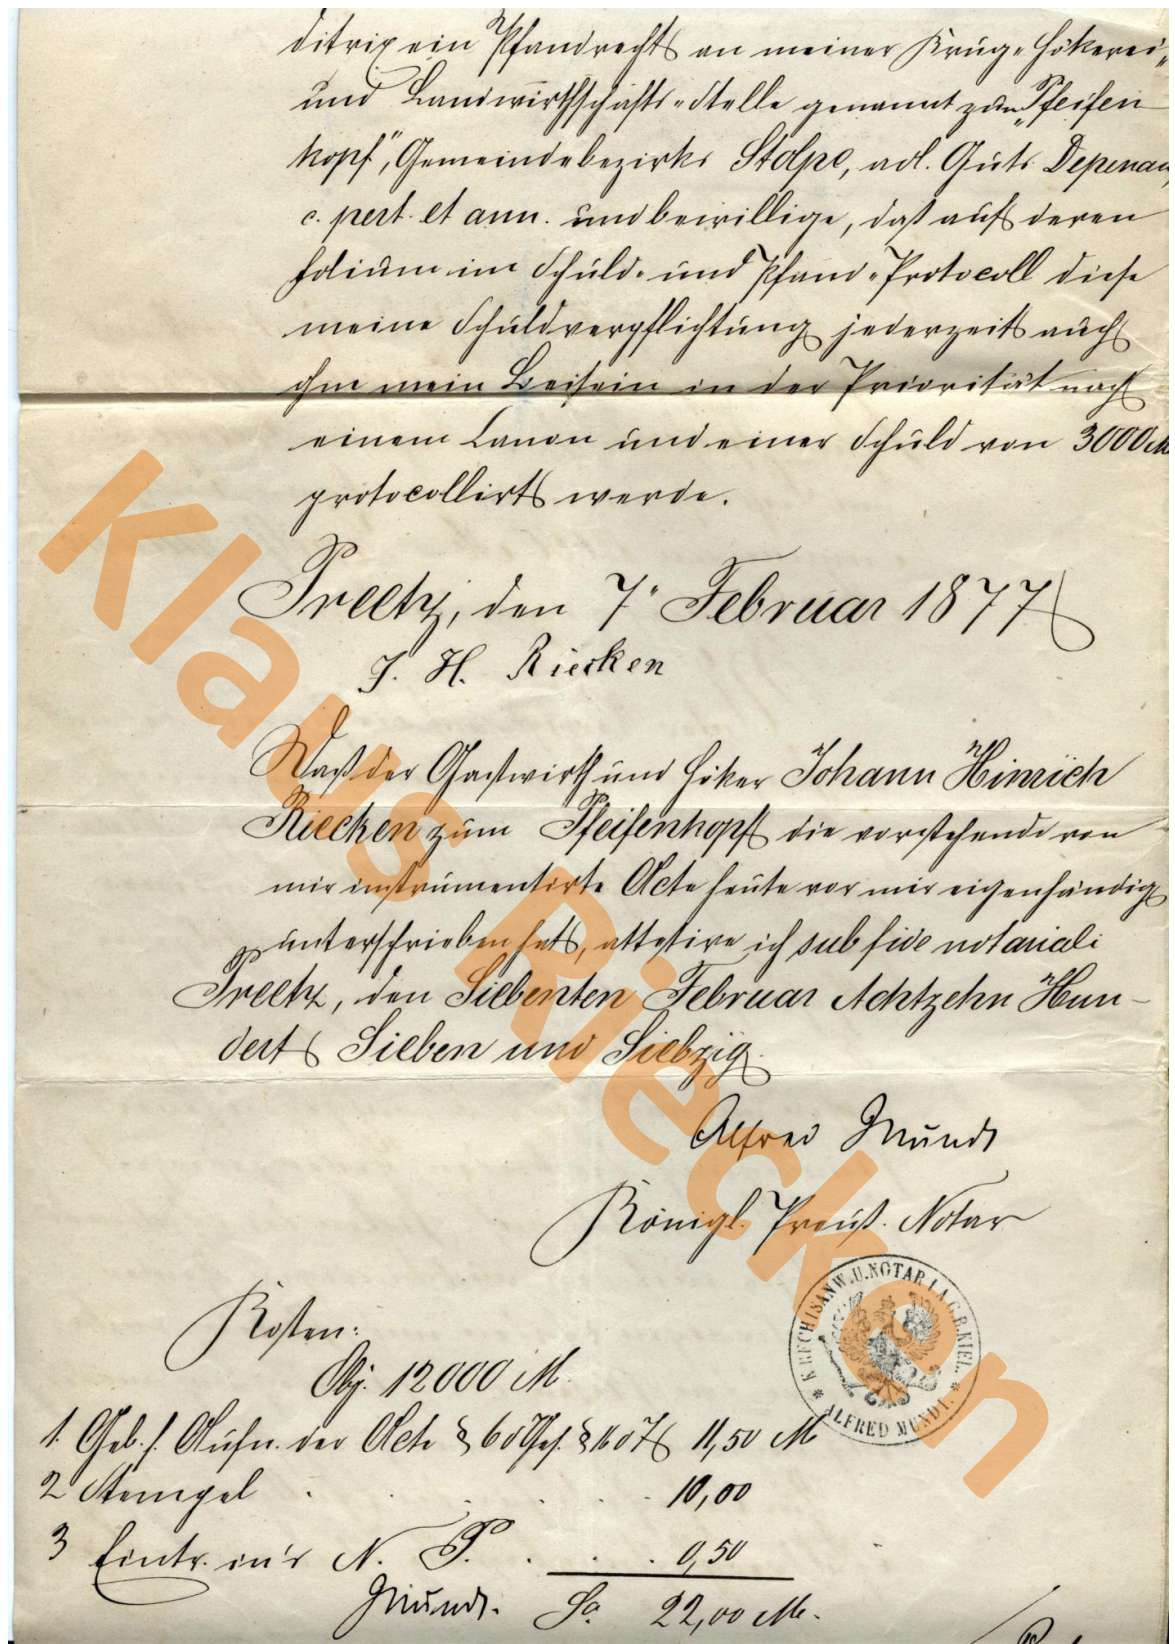 ditrix ein Pfandrecht an meiner Krug-Hökerei-
und Landwirthschafts-Stelle genannt zum „Pfeifen
kopf“, Gemeindebezirks Stolpe, adl. Guts Depenau,
c. pert. et ann. und bewillige, daß auf deren
Folium im Schuld- und Pfand-Protocoll diese
meine Schuldverpflichtung jederzeit auch
ohne mein Beisein in der Priorität nach
einem Canon und einer Schuld von 3000 M
protocollirt werde.
Preetz, den 7. Februar 1877
J. H. Riecken
Daß der Gastwirth und Höker Johann Hinrich
Riecken zum Pfeifenkopf die vorstehende von
mir instrumentirte Acte heute vor mir eigenhändig
unterschrieben hat, attestire ich sub fide notariali
Preetz, den Siebenten Februar Achtzehn Hun-
dert Sieben und Siebzig.
Alfred Mundt
Königl. Preuß. Notar
K. RECHTSANW. U. NOTAR I. A. G. B. KIEL.
* ALFRED MUNDT. *
Kosten:
Obj. 12000 M.
1. Geb. f. Aufn. der Acte § 11,50 M
2 Stempel . . . . . 10,00
3 Eintr. in's N. P. . . . 0,50
Mundt. Sa. 22,00 M.
Klaus Riecken